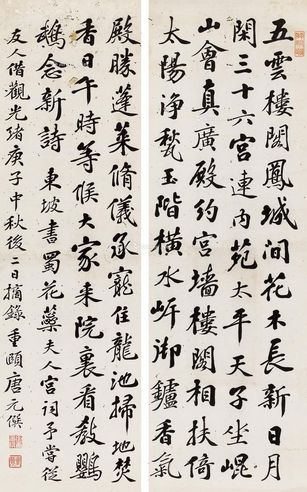 五雲樓閣鳳城間花木長新日月
閑三十六宮連内苑太平天子坐崐
山會真廣殿約宮墙樓閣相扶倚
太陽浄甃玉階橫水岍御鑪香氣
殿勝蓬萊脩儀承寵住龍池掃地焚
香日午時等候大家来院裏看教鸚
鵡念新詩 東坡書蜀花蘂夫人宮詞予嘗從
友人借觀光緒庚子中秋後二日摘錄重頤唐元僎